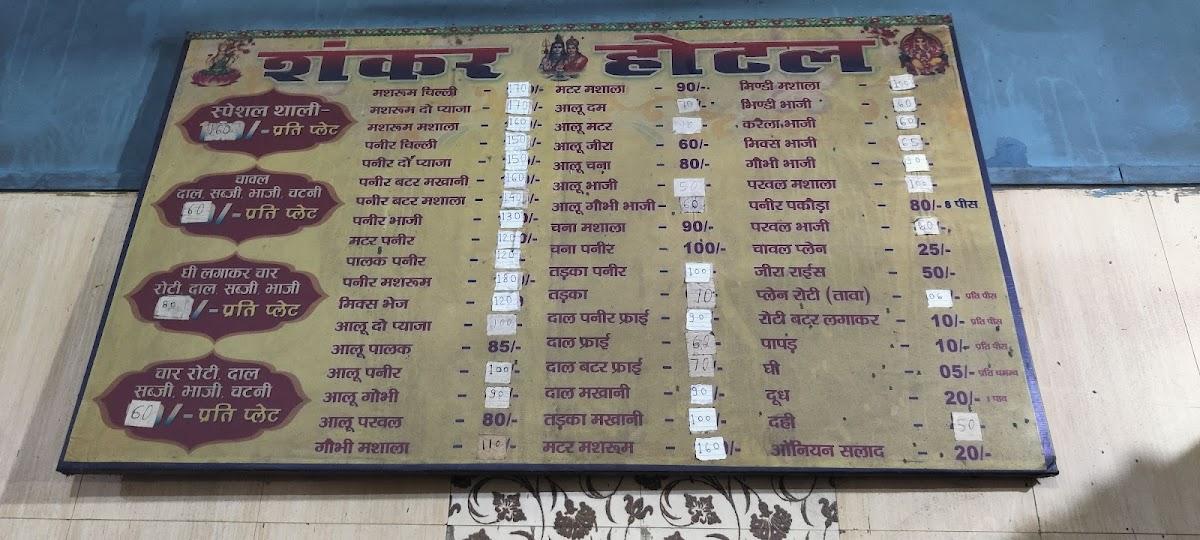 शंकर होटल
स्पेशल थाली-
160/- प्रति प्लेट
चावल
दाल, सब्जी, भाजी, चटनी
60/- प्रति प्लेट
घी लगाकर चार
रोटी, दाल, सब्जी, भाजी
80/- प्रति प्लेट
चार रोटी, दाल
सब्जी, भाजी, चटनी
60/- प्रति प्लेट
मशरूम चिल्ली - 170/-
मशरूम दो प्याजा - 170/-
मशरूम मशाला - 160/-
पनीर चिल्ली - 150/-
पनीर दो प्याजा - 150/-
पनीर बटर मखानी - 160/-
पनीर बटर मशाला - 140/-
पनीर भाजी - 130/-
मटर पनीर - 120/-
पालक पनीर - 120
पनीर मशरूम - 180/-
मिक्स भेज - 120
आलू दो प्याजा - 100
आलू पालक - 85/-
आलू पनीर - 100
आलू गोभी - 90
आलू परवल - 80/-
गौभी मशाला - 110/-
मटर मशाला - 90/-
आलू दम - 70
आलू मटर -
आलू जीरा - 60/-
आलू चना - 80/-
आलू भाजी - 50
आलू गौभी भाजी - 60
चना मशाला - 90/-
चना पनीर - 100/-
तड़का पनीर - 100
तड़का - 70
दाल पनीर फ्राई - 90
दाल फ्राई - 60
दाल बटर फ्राई - 70
दाल मखानी - 90
तड़का मखानी - 100
मटर मशरूम - 160/-
भिण्डी मशाला - 100
भिण्डी भाजी - 60
करैला भाजी - 60
मिक्स भाजी - 65
गौभी भाजी - 90
परवल मशाला - 100
पनीर पकौड़ा - 80/- 8 पीस
परवल भाजी - 60
चावल प्लेन - 25/-
जीरा राईस - 50/-
प्लेन रोटी (तावा) - 06 - प्रति पीस
रोटी बटर लगाकर - 10/- प्रति पीस
पापड़ - 10/- प्रति पीस
घी - 05/- प्रति चमच्च
दूध - 20/- 1 पाव
दही - 50
ओनियन सलाद - 20/-